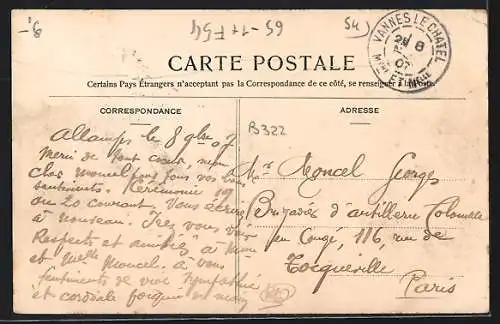 9.-
65-11754
54
VANNES LE CHATEL
28
8
07
MTHE ET MLLE
CARTE POSTALE
Certains Pays Étrangers n'acceptant pas la Correspondance de ce côté, se renseigner à la Poste.
CORRESPONDANCE
ADRESSE
B322
Allamps le 8 9bre 07
Merci de tout cœur, mon
cher Moncel pour tous vos bons
sentiments. Cérémonie 19
ou 20 courant. Vous écrirai
à nouveau.
Respects et amitiés à Mme
et Melle Moncel. à vous
sentiments de vive sympathie
et cordiale
Mr Moncel Georges
Brigadier d'artillerie Coloniale
en Congé, 116, rue de
Tocqueville
Paris